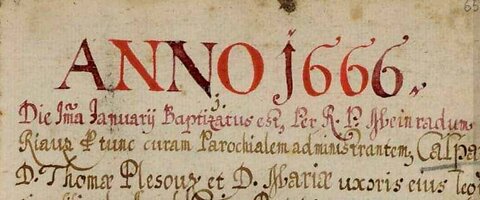 65
ANNO 1666.
Die 1ma Januarij Baptizatus est, Per R. P. Meinradum
Riauz & tunc curam Parochialem administrantem, Caspa
D. Thomæ Plesouz et D. Mariæ uxoris eius legi